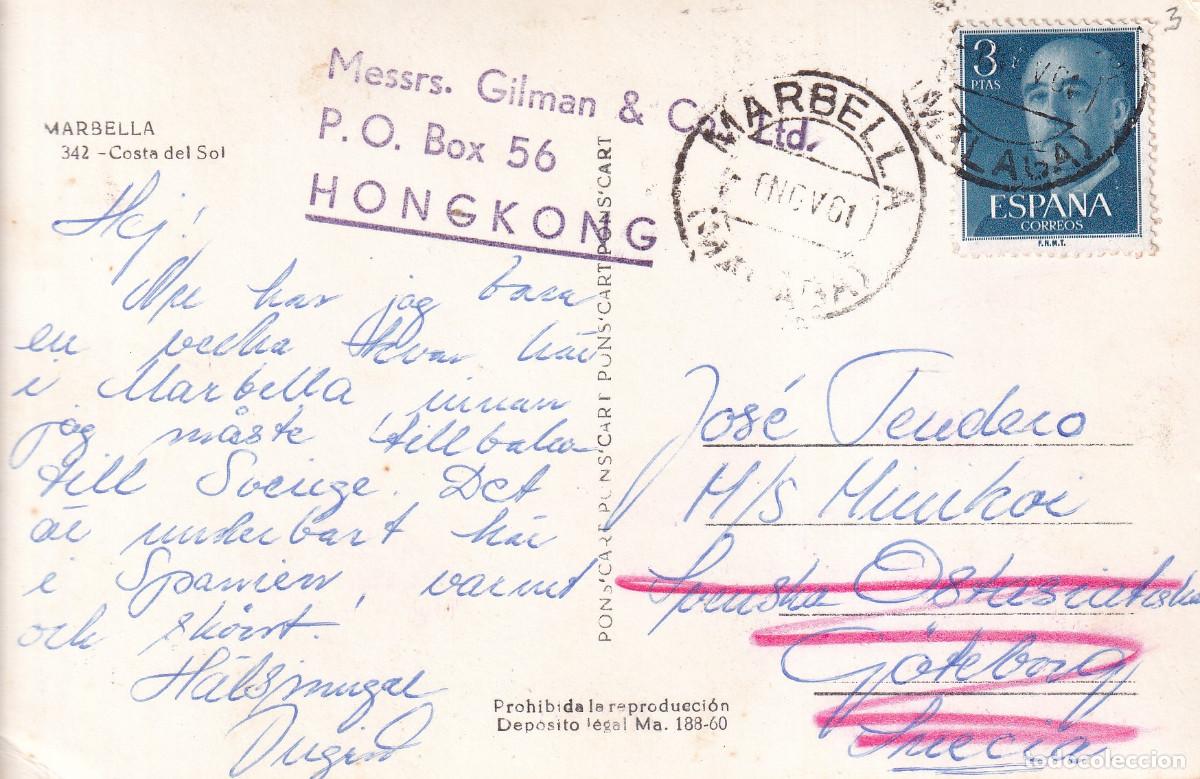 MARBELLA
342 - Costa del Sol
Messrs. Gilman & Co. Ltd.
P.O. Box 56
HONGKONG
MARBELLA
(MALAGA)
3
PTAS
ESPAÑA
CORREOS
F.N.M.T.
(MALAGA)
3
Hej!
Nu har jag bara
en vecka kvar här
i Marbella, innan
jag måste tillbaka
till Sverige. Det
är underbart här
i Spanien, varmt
och skönt.
Hälsningar
PONS'CART PONS'CART PONS'CART PONS'CART PONS'CART
José Tendero
M/S Minikoi
Svenska Ostasiatiska
Göteborg
Suecia
Prohibida la reproducción
Depósito légal Ma. 188-60
todocoleccion